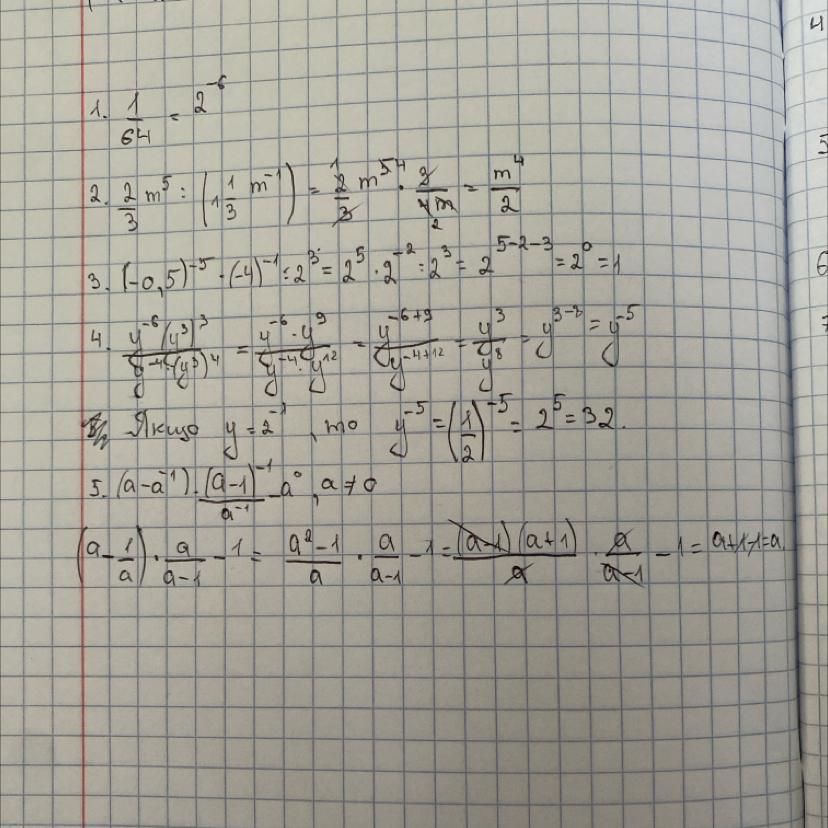 4
1. 1/64 = 2^-6
2. 2/3 m^5 : (1 1/3 m^-1) = 2/3 m^5 · 3/4m = m^4/2
5
3. (-0,5)^-5 · (-4)^-1 : 2^3 = 2^5 · 2^-2 : 2^3 = 2^5-2-3 = 2^0 = 1
6
4. y^-6 (y^3)^3 / y^-4 · (y^3)^4 = y^-6 · y^9 / y^-4 · y^12 = y^-6+9 / y^-4+12 = y^3 / y^8 = y^3-8 = y^-5
7
Якщо y = 2^-1, то y^-5 = (1/2)^-5 = 2^5 = 32.
5. (a - a^-1) · (a-1)^-1 / a^-1 - a^0, a ≠ 0
(a - 1/a) · a/a-1 - 1 = a^2-1/a · a/a-1 - 1 = (a-1)(a+1)/a · a/a-1 - 1 = a+1-1=a